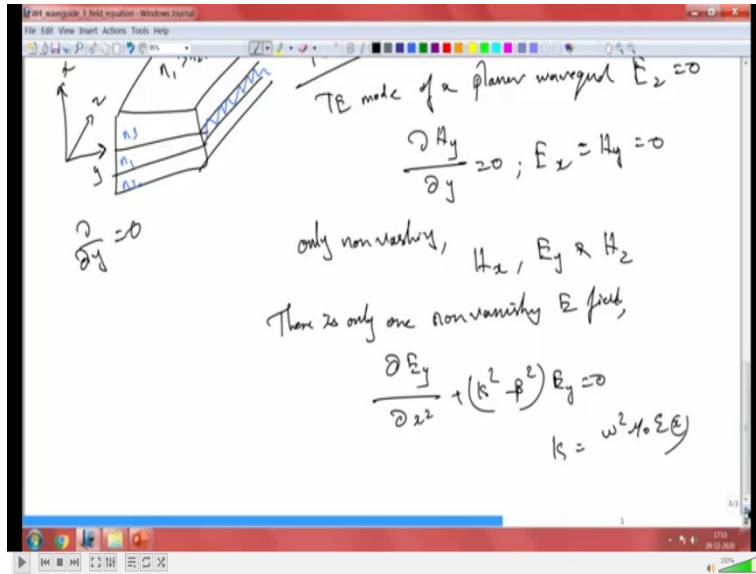 W4_waveguide_3_field_equation - Windows Journal
File Edit View Insert Actions Tools Help
TE mode of a planer wavegud E_z = 0
x
z
y
n_1
n3
n_1
n_2
∂H_y/∂y = 0 ; E_x = H_y = 0
∂/∂y = 0
only nonvashiy, H_x, E_y & H_z
There is only one nonvanishy E field,
∂E_y/∂x² + (k² - β²) E_y = 0
k = ω² μ₀ ε(x)
3/3
1
17:53
29-12-2020
100%